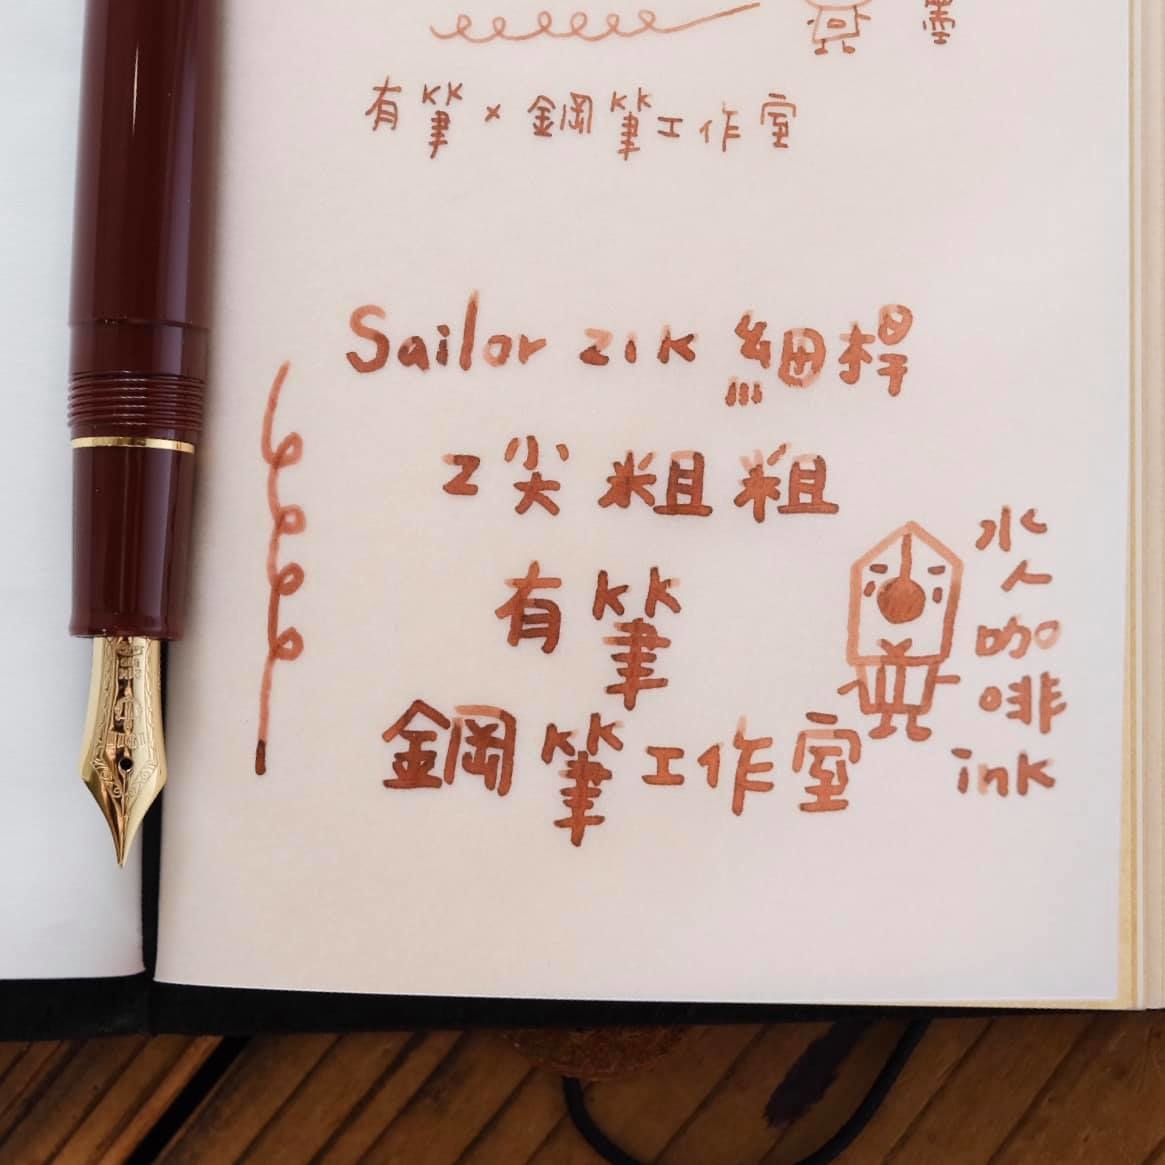 有筆×鋼筆工作室
Sailor 21K 細桿
Z尖粗粗
有筆
鋼筆工作室
水
人
咖
啡
ink